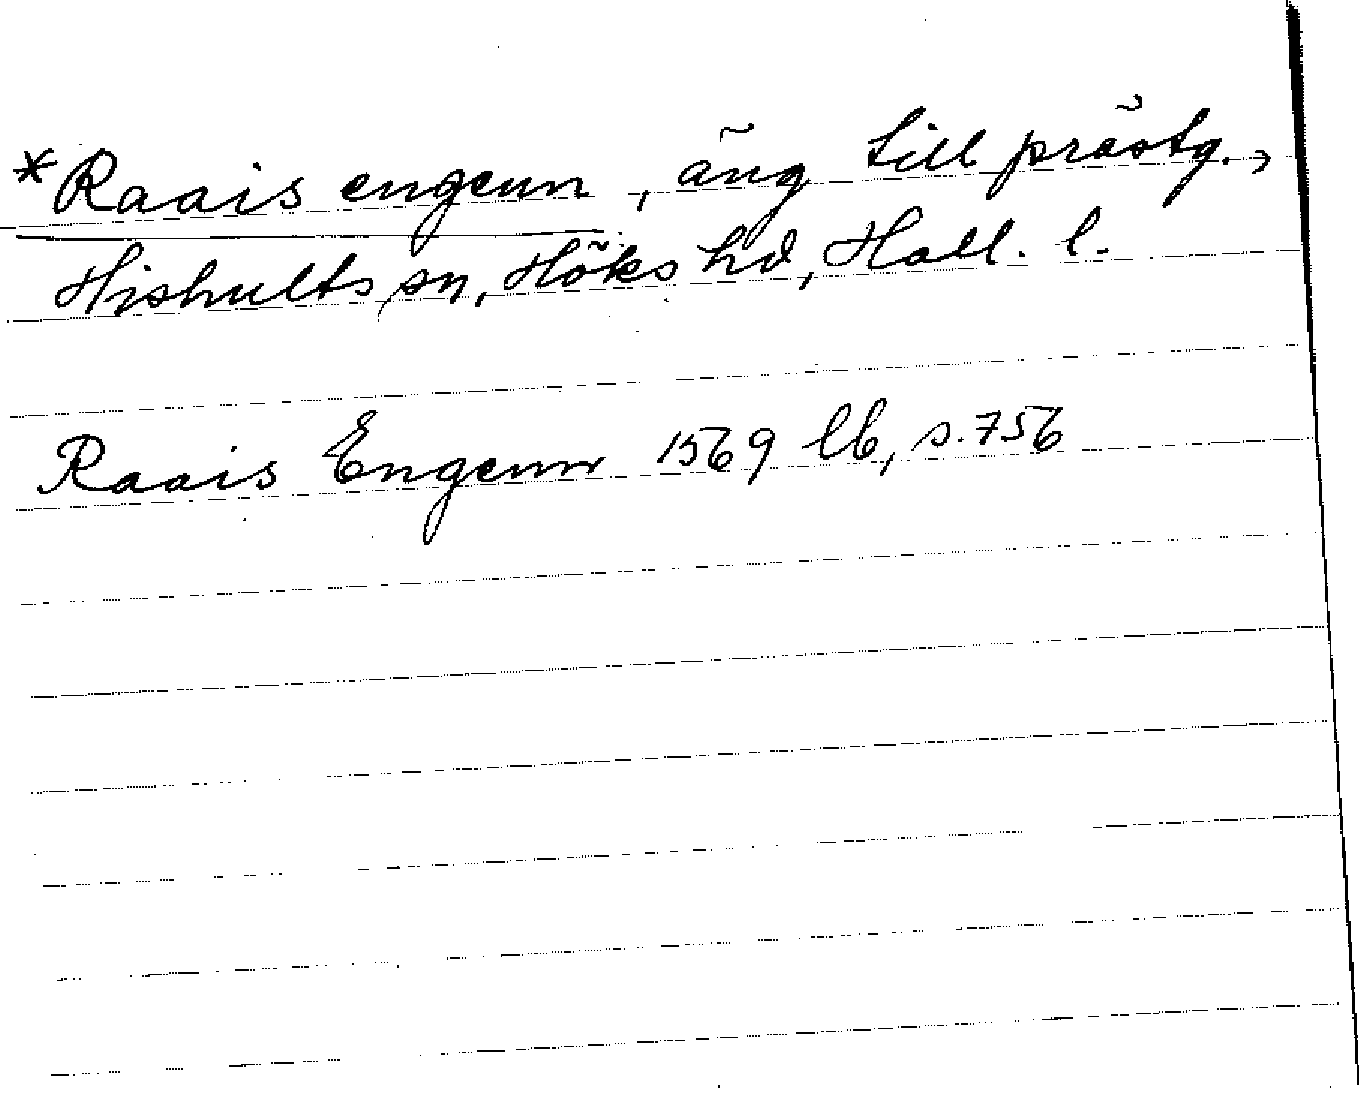 *Raais engenn, äng till prästg.,
Hishults sn, Höks hd, Hall. l.
Raais Engenn 1569 lb, s. 756